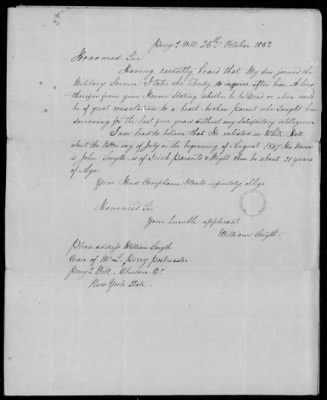 Perry's Mill 26th October 1852
Honored Sir
Having recently heard that My Son joined the
Military Service I take the liberty to inquire after him A line
therefrom from your Honour Stating whether he is Dead or alive would
be of great consolation to a heart broken parent who Sought him
sorrowing for the last five years without any Satisfactory intelligence
I am lead to believe that He enlisted in White Hall
about the latter end of July or the beginning of August 1847 His Name
is John Smyth is of Irish Parents & Might then be about 21 years
of Age
Your Kind Compliance Would infinitely oblige
Honored Sir
Your humble applicant
William Smyth
Please address William Smyth
Care of Mr L. Perry postmaster
Perry's Mill, Clinton Co.
New York State